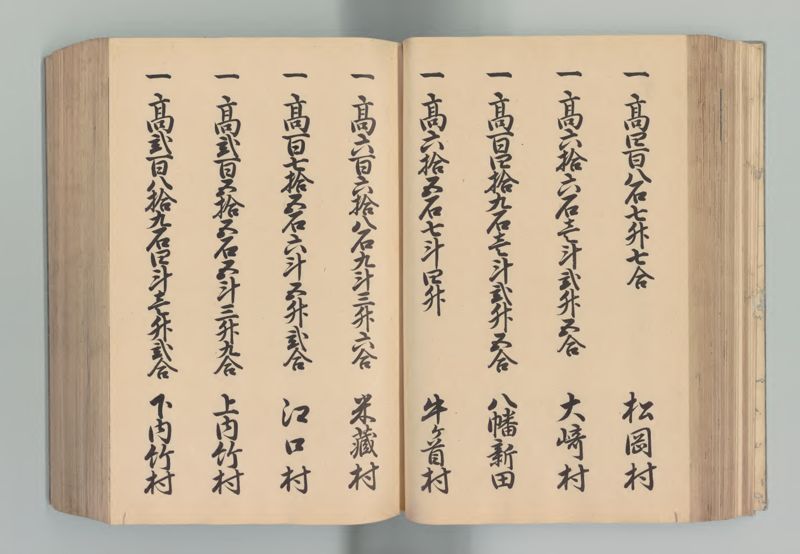 一 高四百八石七升七合 松岡村
一 高六拾六石壱斗弐升五合 大崎村
一 高百四拾九石壱斗弐升五合 八幡新田
一 高六拾五石七斗四升 牛ヶ首村
一 高六百六拾八石九斗三升六合 米蔵村
一 高百七拾五石六斗五升弐合 江口村
一 高弐百五拾五石五斗三升九合 上内竹村
一 高弐百八拾九石四斗壱升弐合 下内竹村